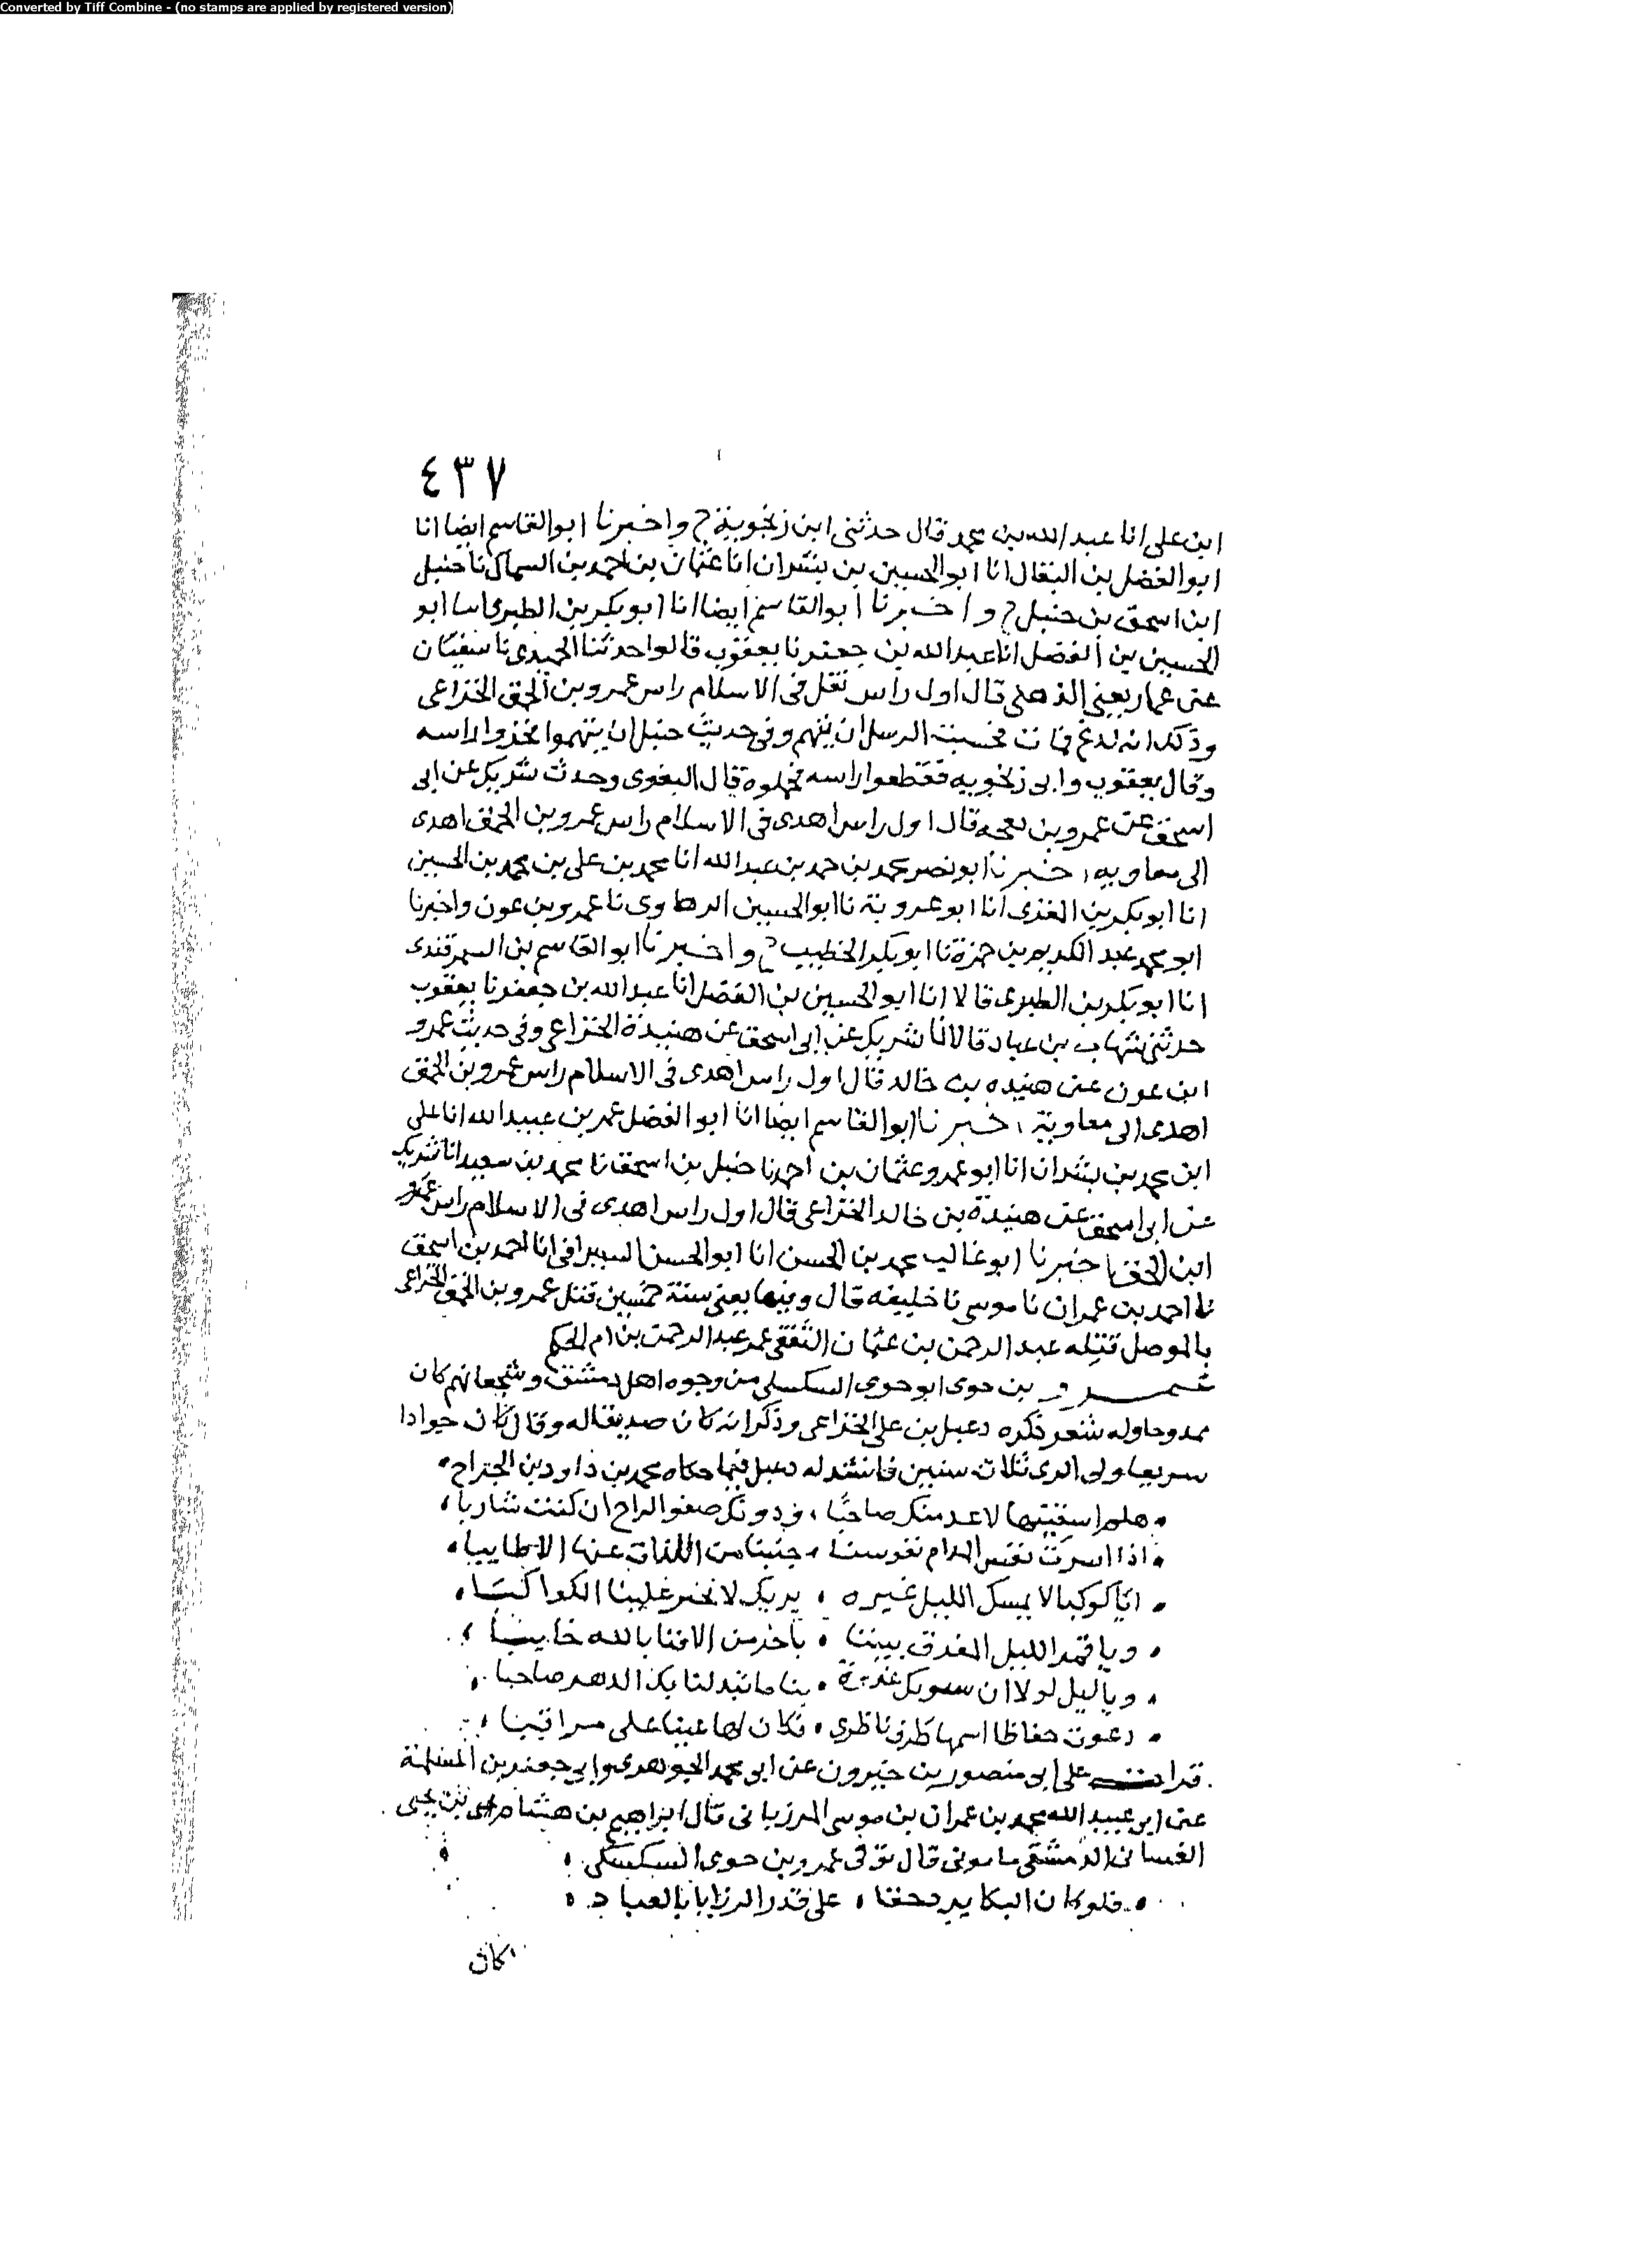 Converted by Tiff Combine - (no stamps are applied by registered version)
٤٣٧
ابن على انا عبد الله بن محمد قال حدثنى ابن زنجوية ح واخبرنا ابو القاسم ايضا انا
ابو الفضل بن البقال انا ابو الحسين بن بشران انا عثمان بن احمد بن السماك نا حنبل
ابن اسحق بن حنبل ح واخبرنا ابو القاسم ايضا انا ابو بكر بن الطبرى انا ابو
الحسين بن الفضل انا عبد الله بن جعفر نا يعقوب قالوا حدثنا الحميدى نا سفيان
عن عمار يعنى الذهلى قال اول راس نقل فى الاسلام راس عمرو بن الحمق الخزاعى
وذلك انه لدغ فمات فخسيت الرسل ان يتهم وفى حديث حنبل ان يتهموا فخذوا راسه
وقال يعقوب وابى زنجويه فقطعوا راسه فحملوه قال البغوى وحدث شريك عن ابى
اسحق عن عمرو بن بعجه قال اول راس اهدى فى الاسلام راس عمرو بن الحمق اهدى
الى معاويه، خبرنا ابو نصر محمد بن حمد بن عبد الله انا محمد بن على بن محمد بن الحسين
انا ابو بكر بن المقرى انا ابو عروبة نا ابو الحسين الرهاوى نا عمرو بن عون واخبرنا
ابو محمد عبد الكريم بن حمزة نا ابو بكر الخطيب ح واخبرنا ابو القاسم بن السمرقندى
انا ابو بكر بن الطبرى قالا انا ابو الحسين بن الفضل انا عبد الله بن جعفر نا يعقوب
حدثنى شهاب بن عباد قالا انا شريك عن ابى اسحق عن هنيدة الخزاعى وفى حديث عمرو
ابن عون عن هنيده بن خالد قال اول راس اهدى فى الاسلام راس عمرو بن الحمق
اهدى الى معاوية، خبرنا ابو القاسم ايضا انا ابو الفضل عمر بن عبيد الله انا على
ابن محمد بن بشران انا ابو عمرو عثمان بن احمد نا حنبل بن اسحق نا محمد بن سعيد انا شريك
عن ابى اسحق عن هنيدة بن خالد الخزاعى قال اول راس اهدى فى الاسلام راس عمرو
ابن الحمق اخبرنا ابو غالب محمد بن الحسن انا ابو الحسن السيرافى انا احمد بن اسحق
نا احمد بن عمران نا موسى نا خليفه قال وفيها يعنى سنة خمسين قتل عمرو بن الحمق الخزاعى
بالموصل قتله عبد الرحمن بن عثمان الثقفى عم عبد الرحمن بن ام الحكم
عمرو بن حوى ابو حوى السكسكى من وجوه اهل دمشق وشجعانهم كان
ممدوحا وله شعر ذكره دعبل بن على الخزاعى وذكر انه كان صديقا له وقال كان جوادا
سريعا ولى الرى ثلاث سنين فانشد له دعبل فيما حكاه محمد بن داود بن الجراح
هلم اسقنيها لا عدمتك صاحبًا، ودونك صفو الراح ان كنت شاربا،
اذا اسرت نفس المدام نفوسنا، جنينا من اللذات عنها الاطايبا
ايا كوكبا لا يمسك الليل غيره، بربك لا تخبر علينا الكواكبا،
ويا قمر الليل المفرق بيننا، تاخر من الافنا بالله خايبا،
وياليل لولا ان بنا ما تبدلنا بك الدهر صاحبا
دعوت حفاظا اسمها طرف ناظرى، فكان لها عينا على مراقبا،
قرات على ابى منصور بن خيرون عن ابى محمد الجوهرى وابى جعفر بن المسلمة
عن ابى عبيد الله محمد بن عمران بن موسى المرزبانى قال ابراهيم بن هشام بن يحيى
الغسانى الدمشقى مامونى قال توفى عمرو بن حوى السكسكى،
فلو كان البكا يرد حقا، على قدر الرزايا بالعباد،
كان